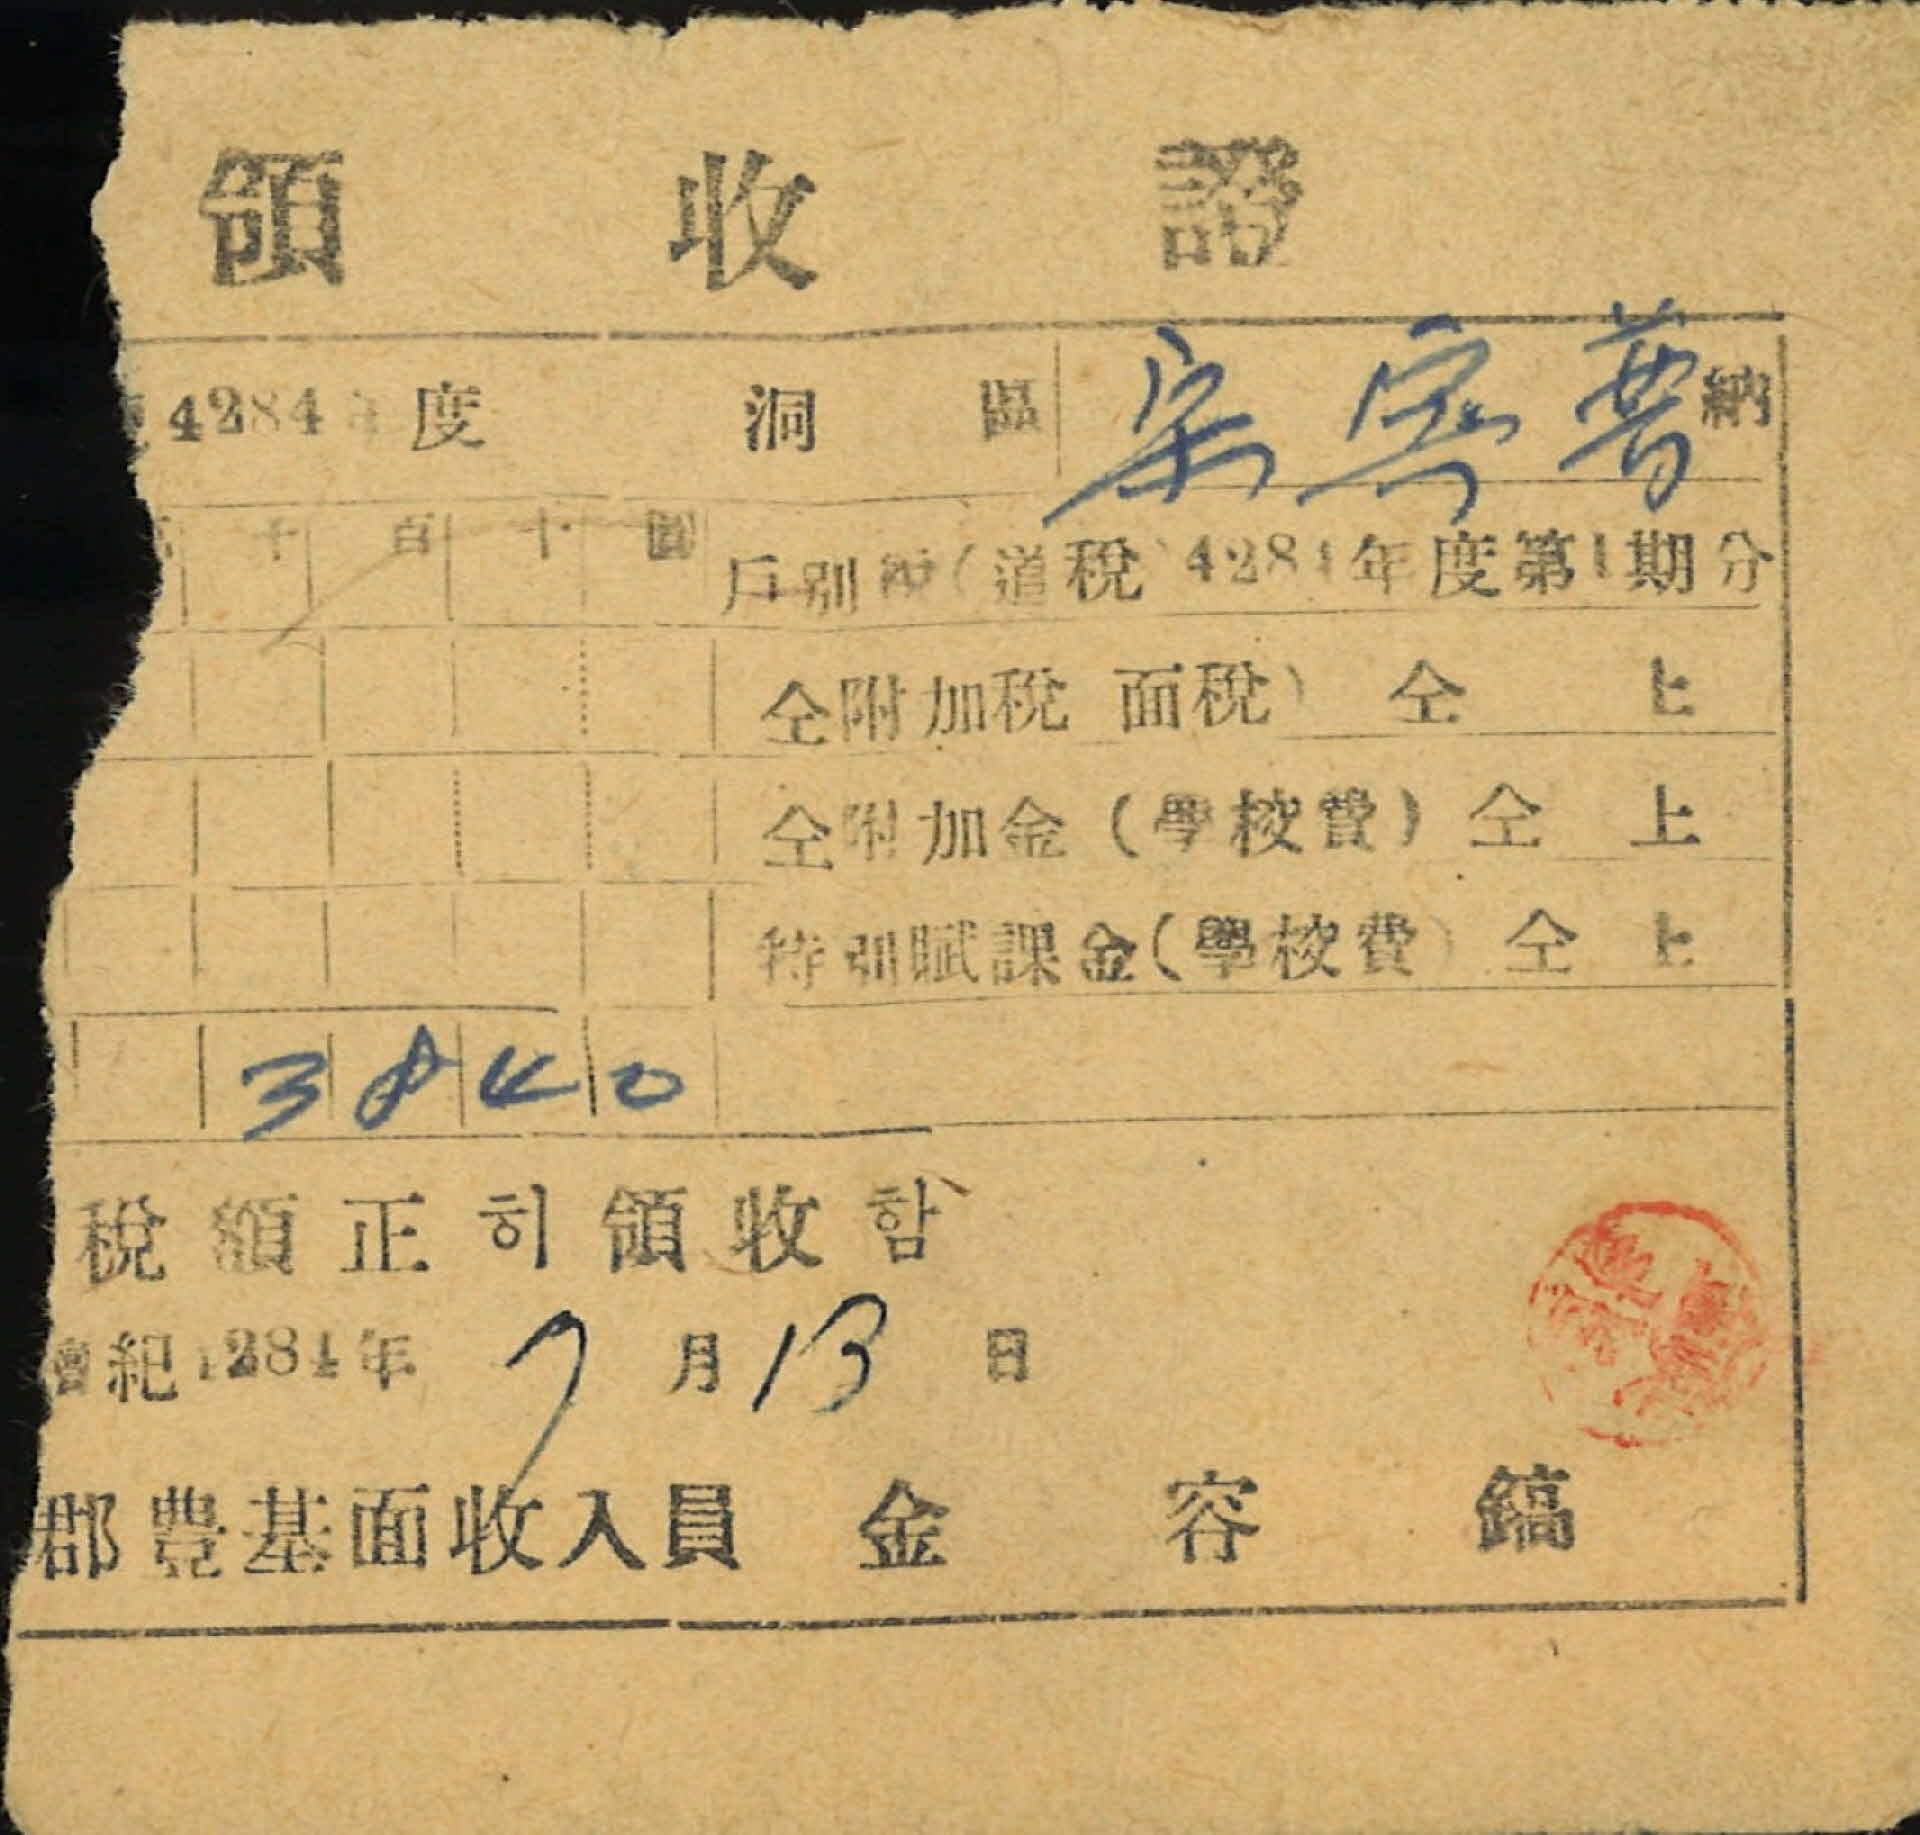 領收證
4284年度 洞 區 宋寅普 納
千百十圓
戶別稅(道稅)4284年度第1期分
仝附加稅 面稅) 仝 上
仝附加金(學校費)仝 上
特別賦課金(學校費) 仝 上
3840
稅額正히領收함
紀4284年 7月13日
郡豊基面收入員 金容鎬